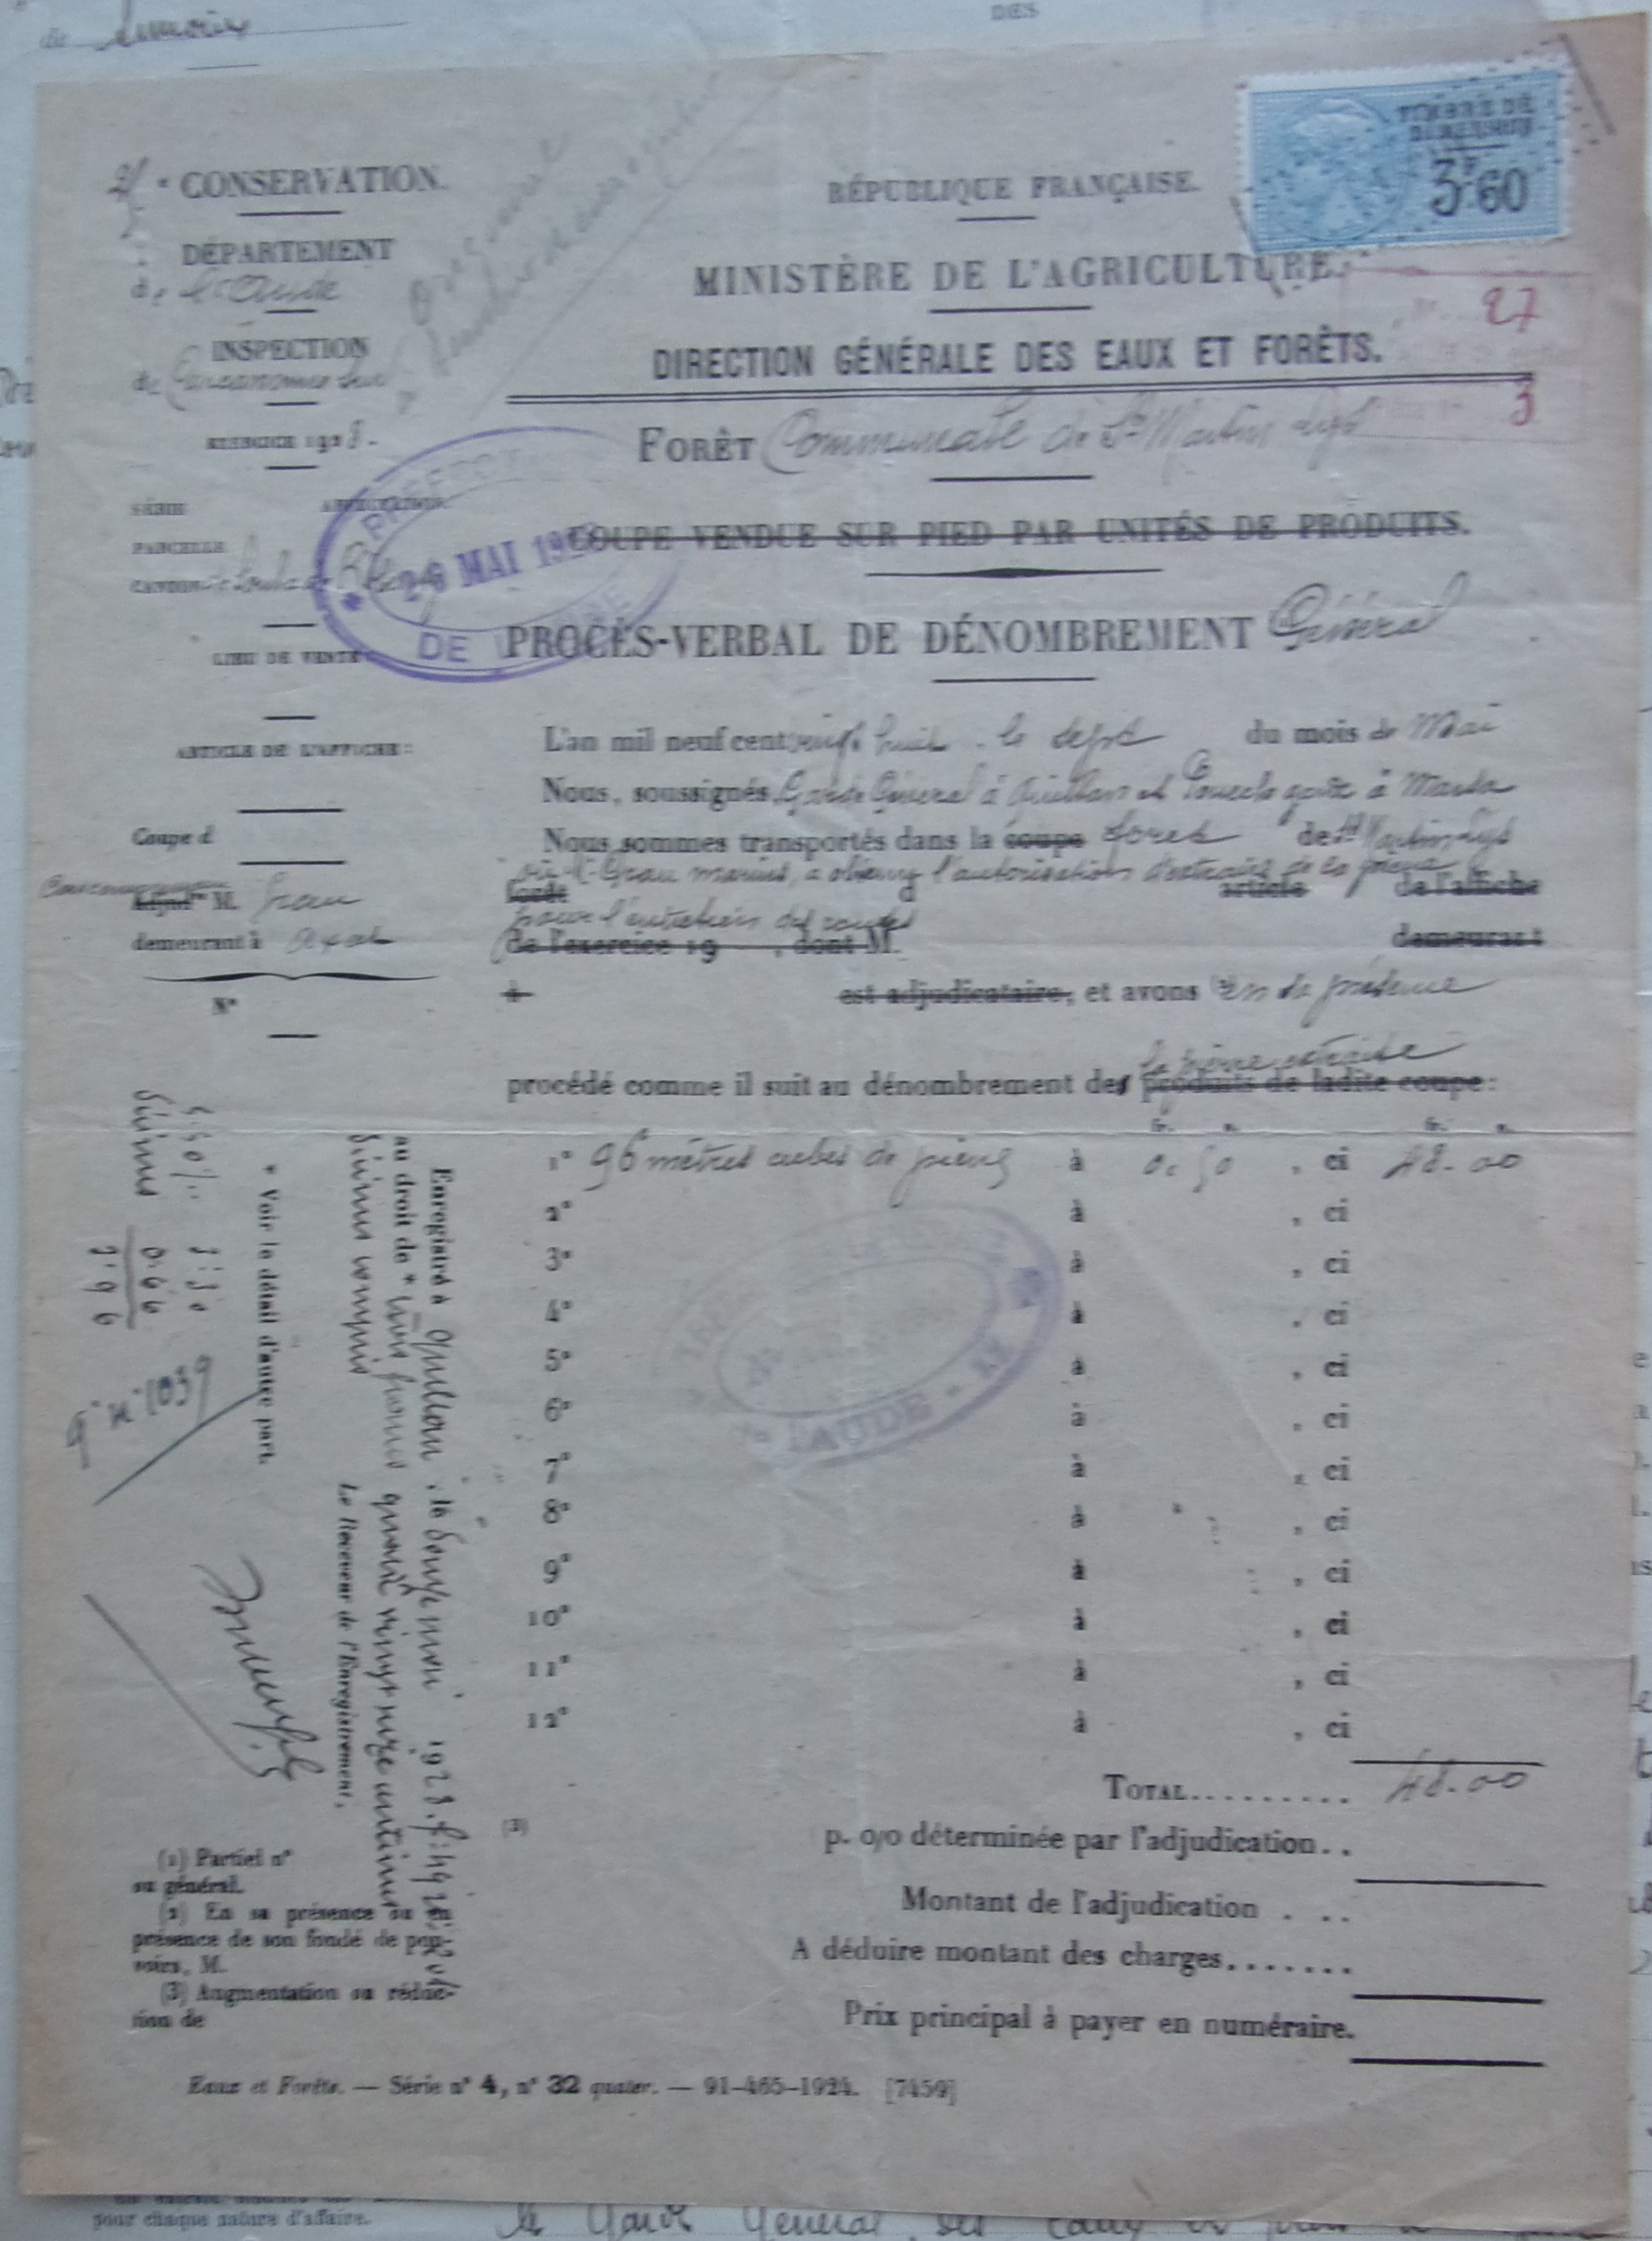 DES
CONSERVATION.
DÉPARTEMENT
de l'Aude
INSPECTION
de Carcassonne Sud
EXERCICE 1928.
SÉRIE
PARCELLE
CANTON
LIEU DE VENTE
ARTICLE DE L'AFFICHE :
Coupe d
M. Grau
demeurant à Axat
N°
RÉPUBLIQUE FRANÇAISE.
TIMBRE DE
DIMENSION
3F60
MINISTÈRE DE L'AGRICULTURE.
27
DIRECTION GÉNÉRALE DES EAUX ET FORÊTS.
3
FORÊT Communale de St Martin Lys
COUPE VENDUE SUR PIED PAR UNITÉS DE PRODUITS.
26 MAI
DE L'AUDE
PROCÈS-VERBAL DE DÉNOMBREMENT Général
L'an mil neuf cent vingt huit le sept du mois de Mai
Nous, soussignés Garde Général à Quillan et garde à
Nous sommes transportés dans la coupe foret de St Martin Lys
où M. Grau marius, a obtenu l'autorisation d'extraire de la pierre
article de l'affiche
pour l'entretien des routes
de l'exercice 19 , dont M. demeurant
à est adjudicataire, et avons en sa présence
la pierre extraite
procédé comme il suit au dénombrement des produits de ladite coupe :
fr. c. fr. c.
1° 96 mètres cubes de pierre à 0.50 , ci 48.00
2° à , ci
3° à , ci
4° à , ci
5° à , ci
6° à , ci
7° à , ci
8° à , ci
9° à , ci
10° à , ci
11° à , ci
12° à , ci
L'AUDE
TOTAL......... 48.00
(3) p. 0/0 déterminée par l'adjudication..
Montant de l'adjudication . ..
A déduire montant des charges.......
Prix principal à payer en numéraire.
Enregistré à Quillan, le douze mai 1928.
au droit de * trois francs quatre vingt seize centimes
décimes compris
Le Receveur de l'Enregistrement,
* Voir le détail d'autre part.
décimes 0.66
3.96
n° 1039
(1) Partiel n°
ou général.
(2) En sa présence ou en
présence de son fondé de pou-
voirs, M.
(3) Augmentation ou réduc-
tion de
Eaux et Forêts. — Série n° 4, n° 32 quater. — 91-465-1924. [7459]
pour chaque nature d'affaire.
le Garde Général des Eaux et